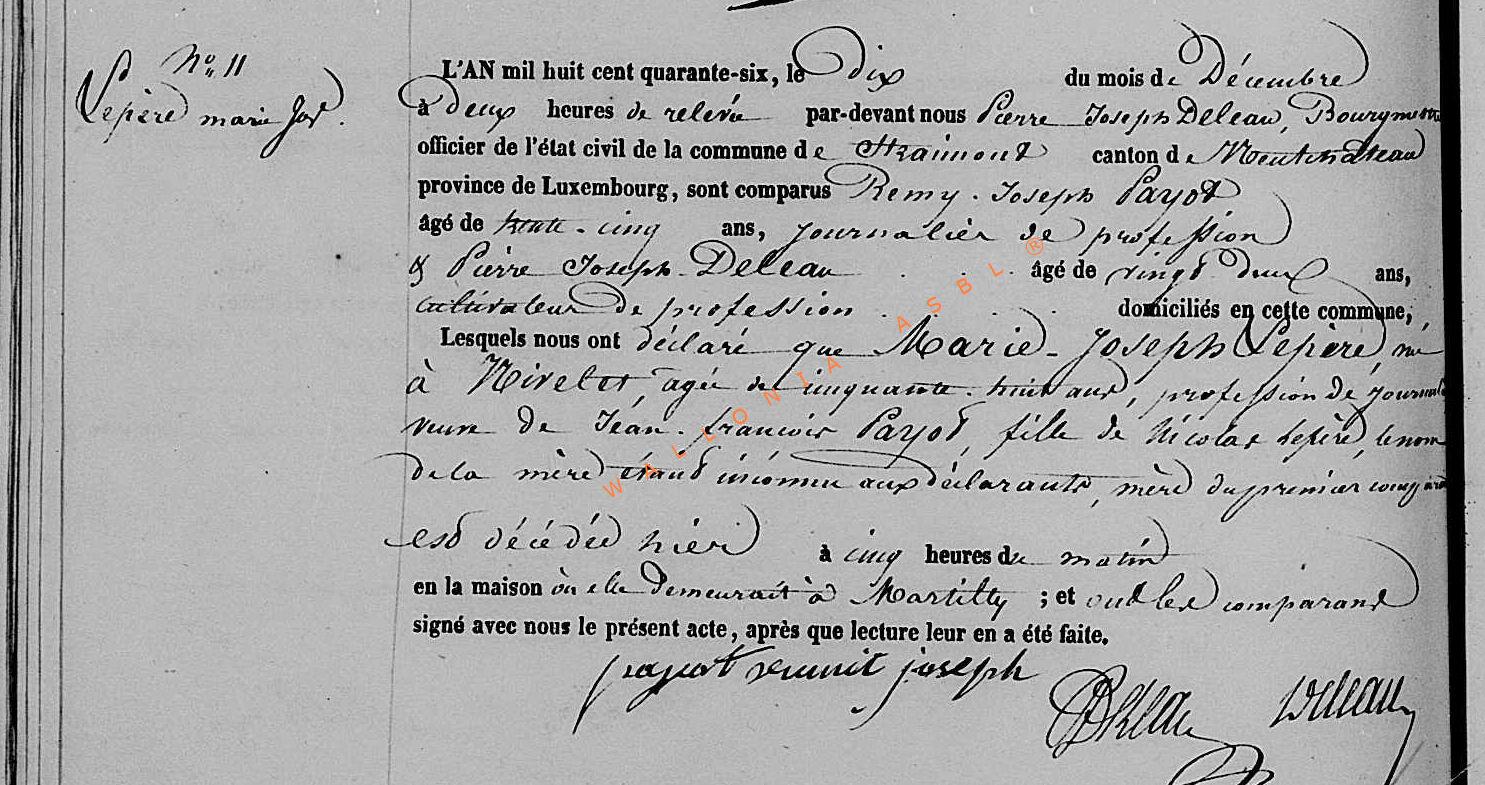 N° 11
Lepère marie Jos.
L'AN mil huit cent quarante-six, le Dix du mois de Décembre
à deux heures de relevée par-devant nous Pierre Joseph Deleau, Bourgmestre
officier de l'état civil de la commune de Straimont canton de Neufchateau
province de Luxembourg, sont comparus Remy Joseph Payot
âgé de trente-cinq ans, journalier de profession
& Pierre Joseph Deleau âgé de vingt deux ans,
cultivateur de profession domiciliés en cette commune,
Lesquels nous ont déclaré que Marie-Joseph Lepère, née
à Nivelet, agée de cinquante-huit ans, profession de journal
veuve de Jéan-francois Payot, fille de Nicolas Lepère, le nom
de la mère étant inconnu aux déclarants, mère du premier comparant
est décédée hier à cinq heures du matin
en la maison où elle demeurait à Martilly ; et ont les comparans
signé avec nous le présent acte, après que lecture leur en a été faite.
payot joseph
Deleau
WALLONIA ASBL ®